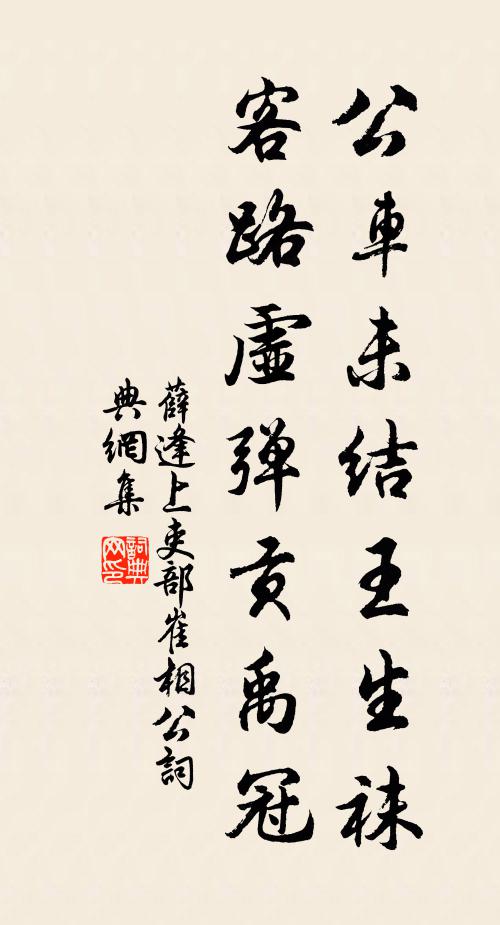 公車未結王生襪
客路虛彈貢禹冠
薛逢上吏部崔相公詞
典網集
詞典
网印